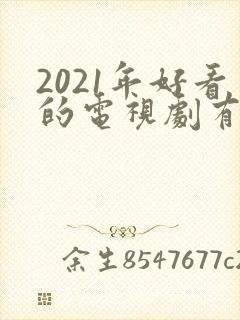 2021年好看
的電視劇有
余生8547677c2